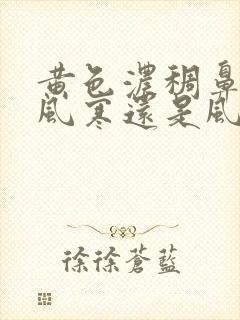 黄色濃稠鼻
風寒還是風
徐徐蒼藍